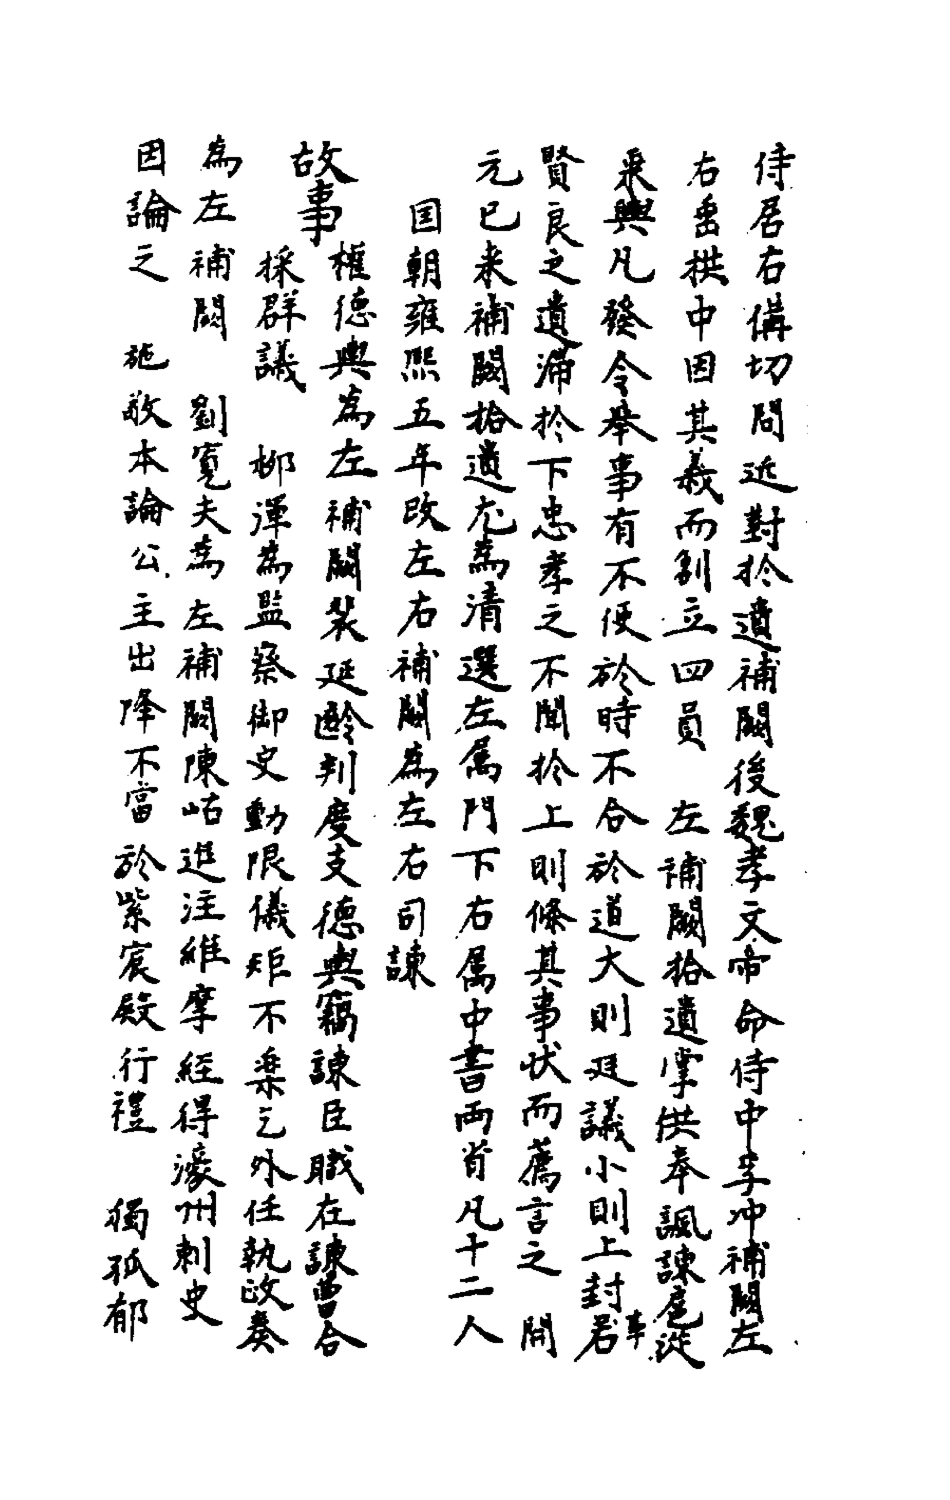 侍居右備切問近對扵遺補闕後魏孝文帝命侍中李冲補闕左
右垂拱中因其義而創立四員　左補闕拾遺掌供奉諷諫扈從
乘輿凡發令舉事有不便於時不合於道大則廷議小則上封事若
賢良之遺滯扵下忠孝之不聞扵上則條其事狀而薦言之　開
元已来補闕拾遺尤為清選左属門下右属中書両省凡十二人
国朝雍熙五年改左右補闕為左右司諫
故事
權德輿為左補闕裴延齡判度支德輿竊諫臣職在諫曹合
採群議　柳渾為監察御史動限儀矩不樂乞外任執政奏
為左補闕　劉寛夫為左補闕陳岵進注維摩經得濠州刺史
因論之　施敬本論公主出降不當於紫宸殿行禮　獨孤郁